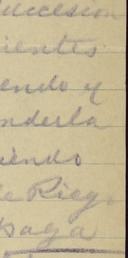 ucesion
ientes
endo y
nderla
iendo
de Riego
paga